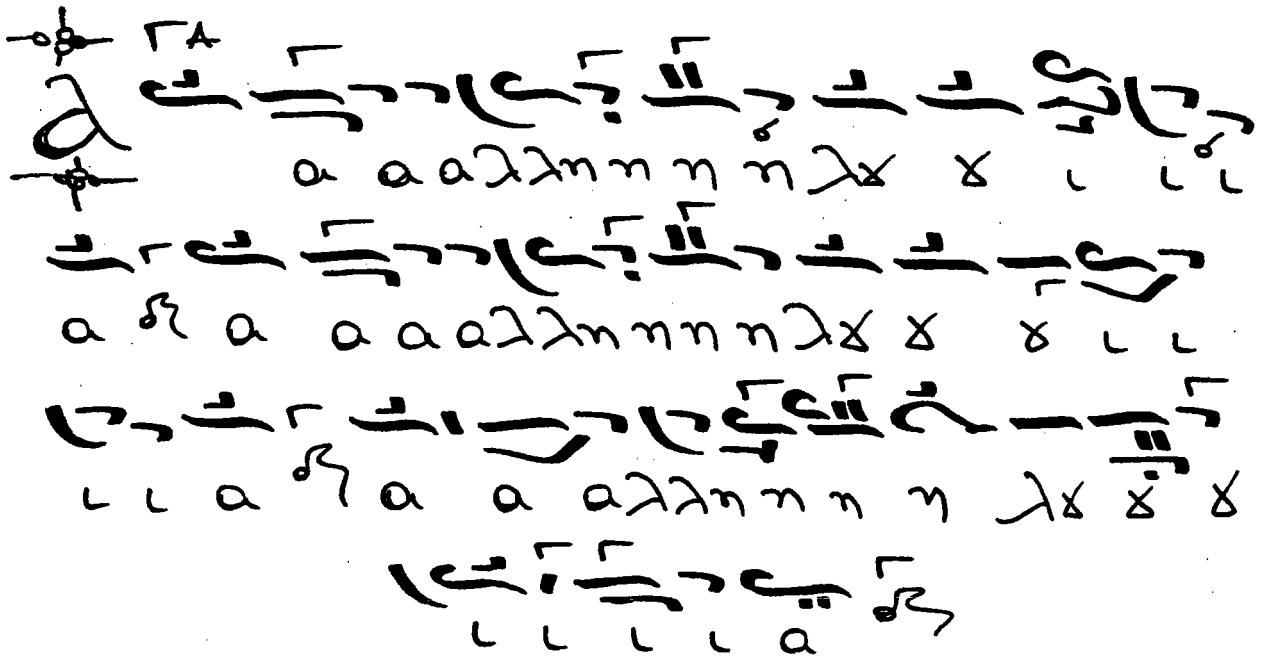 Α α α αλλη η η η λȣ ȣ ι ι ι
α α α α αλλη η η η λȣ ȣ ȣ ι ι
ι ι α α α αλλη η η η λȣ ȣ ȣ
ι ι ι ι α